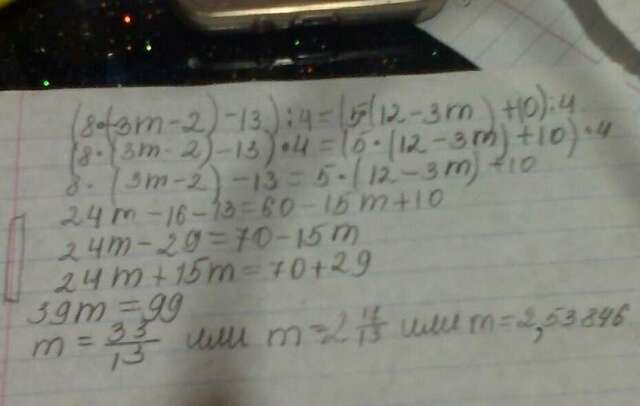 (8·(3m-2)-13):4=(5·(12-3m)+10):4
(8·(3m-2)-13)·4=(5·(12-3m)+10)·4
8·(3m-2)-13=5·(12-3m)+10
24m-16-13=60-15m+10
24m-29=70-15m
24m+15m=70+29
39m=99
m=33/13 или m=2 7/13 или m=2,53846